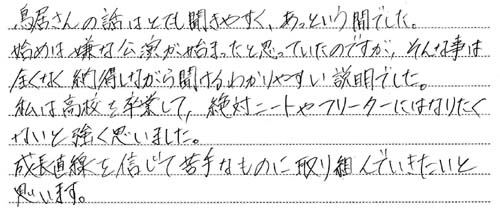 鳥居さんの話はとても聞きやすく、あっという間でした。
始めは嫌な公演が始まったと思っていたのですが、そんな事は
全くなく納得しながら聞けるわかりやすい説明でした。
私は高校を卒業して、絶対ニートやフリーターにはなりたく
ないと強く思いました。
成長直線を信じて苦手なものに取り組んでいきたいと
思います。